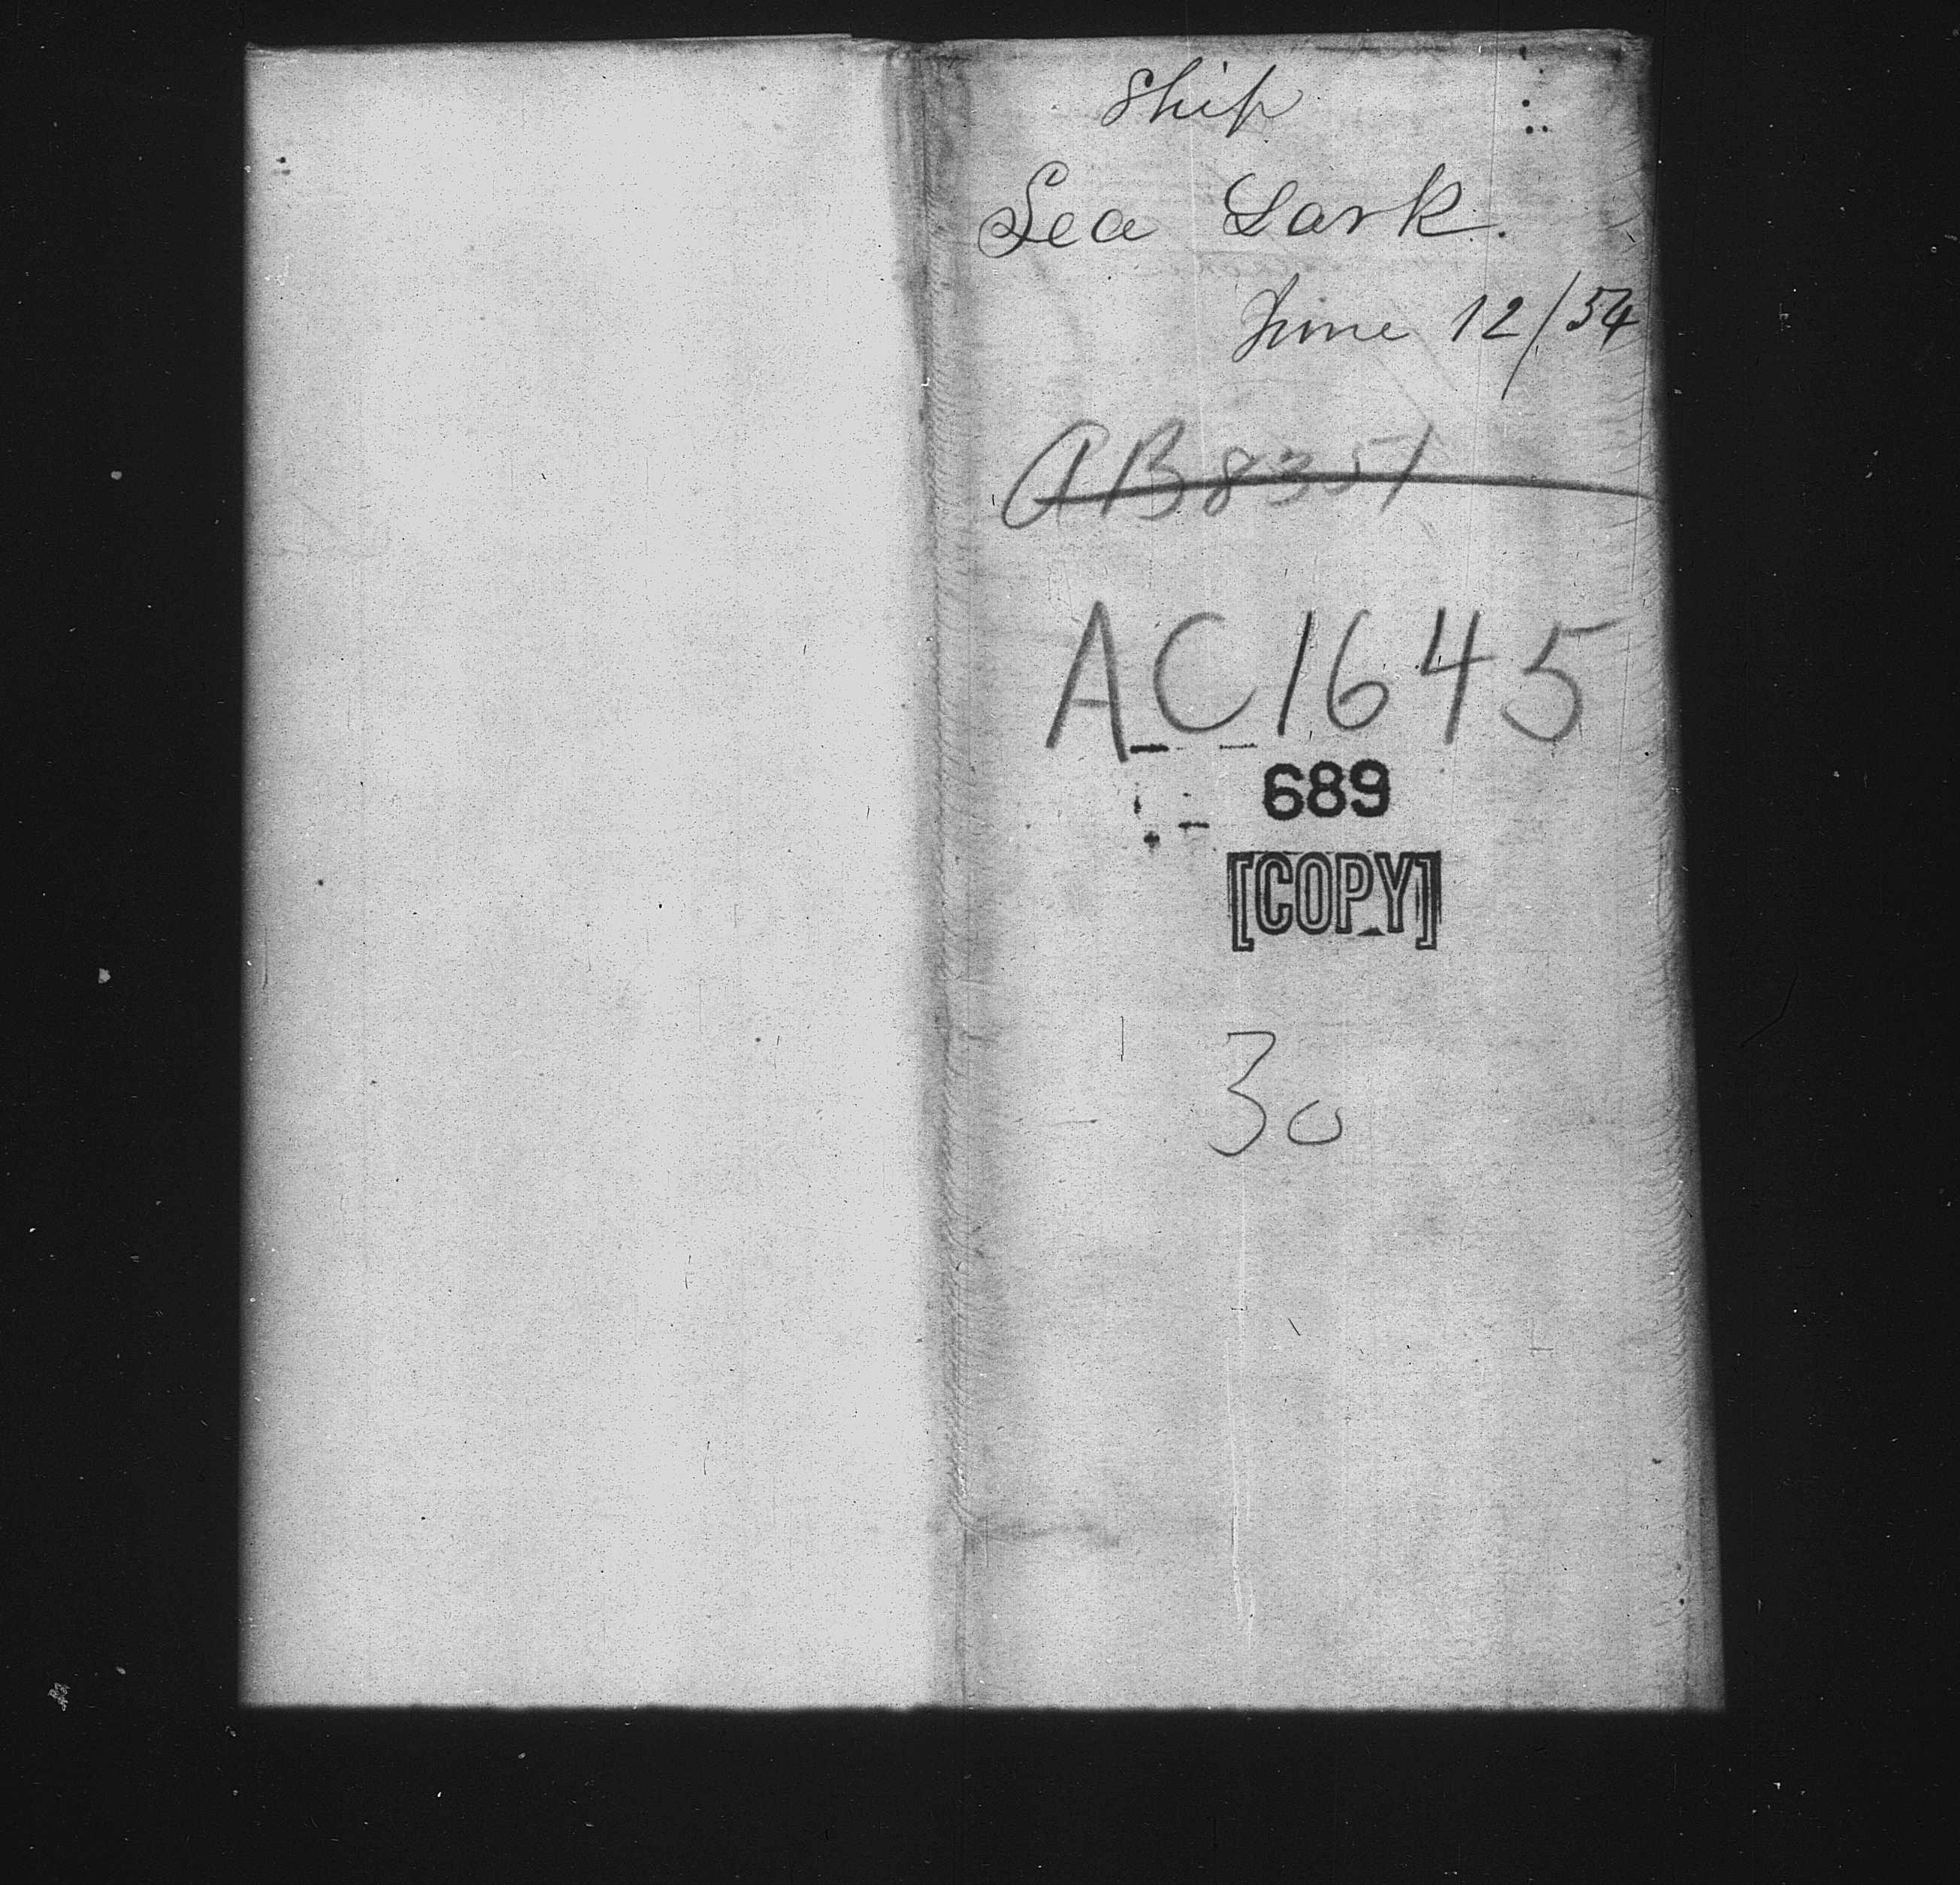 Ship
Sea Lark.
June 12/54
AB8351
AC1645
689
[COPY]
30